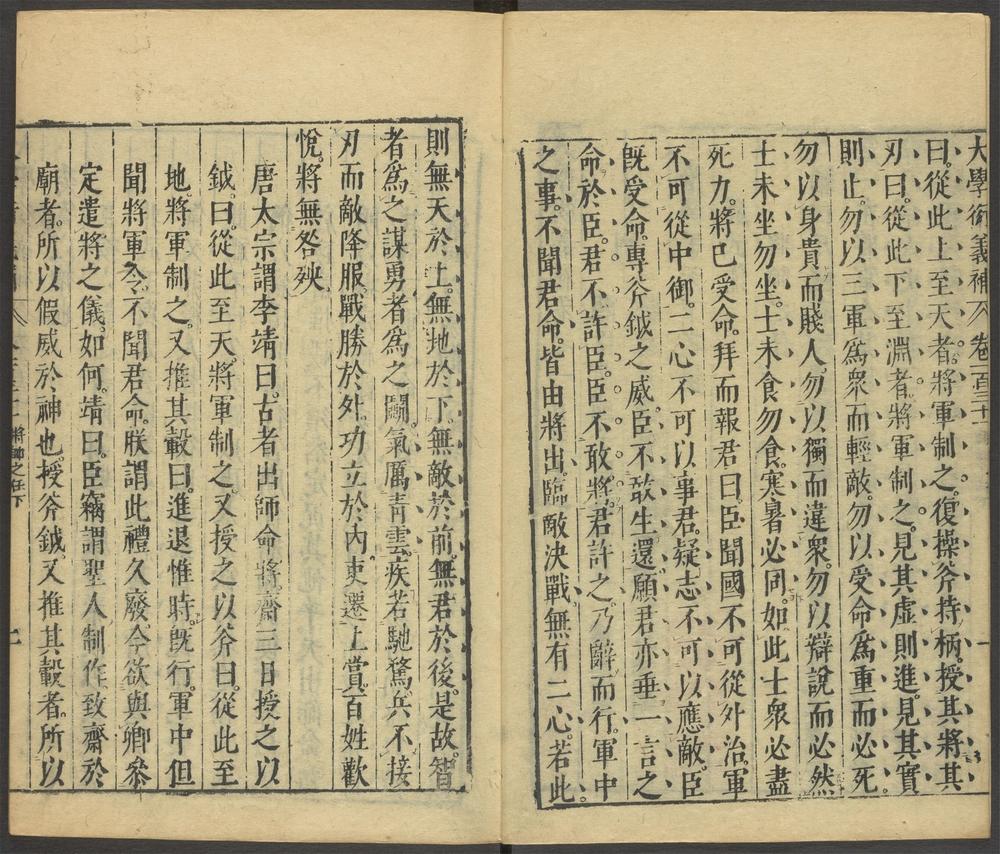 大學衍義補 卷一百三十
曰。從此上至天者。將軍制之。復操斧持柄。授其將其
刃曰。從此下至淵者。將軍制之。見其虛則進。見其實
則止。勿以三軍爲衆而輕敵。勿以受命爲重而必死。
勿以身貴而賤人。勿以獨而違衆。勿以辯說而必然
士未坐勿坐。士未食勿食。寒暑必同。如此士衆必盡
死力。將已受命。拜而報君曰。臣聞國不可從外治。軍
不可從中御。二心不可以事君。疑志不可以應敵。臣
旣受命。專斧鉞之威。臣不敢生還。願君亦垂一言之
命於臣。君不許臣。臣不敢將。君許之。乃辭而行。軍中
之事。不聞君命。皆由將出。臨敵決戰。無有二心。若此。
則無天於上。無地於下。無敵於前。無君於後。是故。智
者爲之謀。勇者爲之鬭。氣厲青雲。疾若馳騖。兵不接
刃而敵降服。戰勝於外。功立於內。吏遷上賞。百姓歡
悅。將無咎殃
唐太宗謂李靖曰。古者出師命將。齋三日授之以
鉞。曰。從此至天。將軍制之。又授之以斧曰。從此至
地。將軍制之。又推其轂曰。進退惟時。旣行。軍中但
聞將軍令。不聞君命。朕謂此禮久廢。今欲與卿參
定遣將之儀。如何。靖曰。臣竊謂聖人制作致齋於
廟者。所以假威於神也。授斧鉞。又推其轂者。所以
將帥之任下